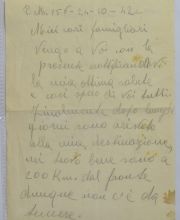 P.M. 156-24-10-42
Miei cari famigliari
Vengo a voi con la
presente notificandovi
la mia ottima salute
e così spero di voi tutti
Finalmente dopo lunghi
giorni sono arrivato
alla mia destinazione,
mi trovo bene sono a
200 Km. dal fronte
dunque non c'è da
temere.